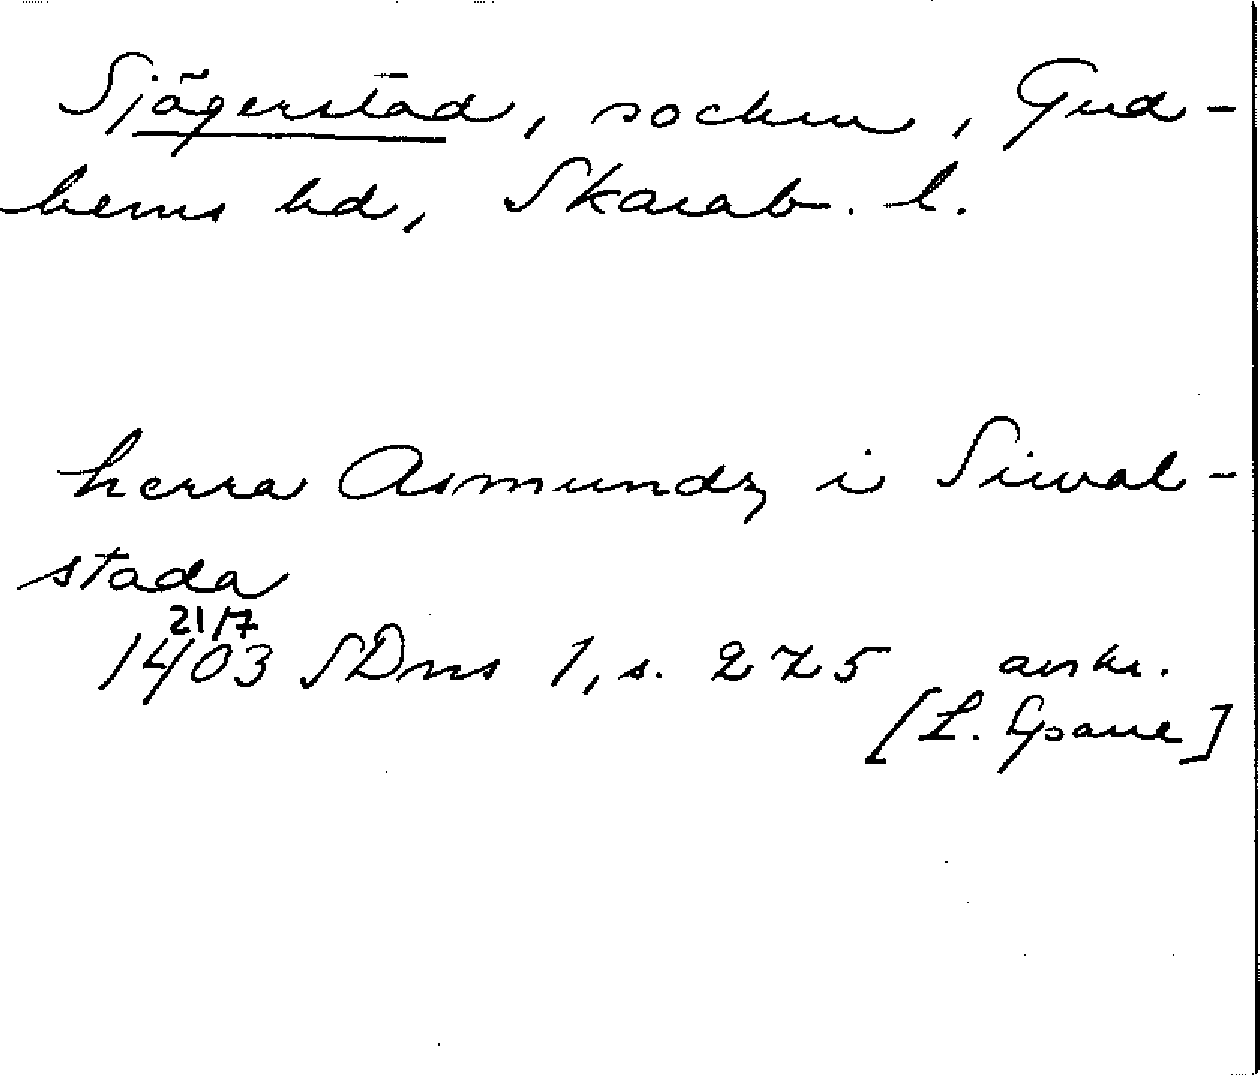 Sjögerstad, socken, Gud-
hems hd, Skarab. l.
herra Asmundz i Siwal-
stada
21/7
1403 SDns 1, s. 275 avskr.
[L. Gpane]